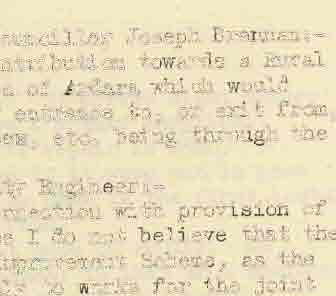 ouncillor Joseph Brennan:-
ntribution towards a Rural
n of Ardara which would
entrance to, or exit from,
es, etc. being through the
ty Engineer:-
nnection with provision of
e I do not believe that the
mprovement Scheme, as the
ly to works for the joint